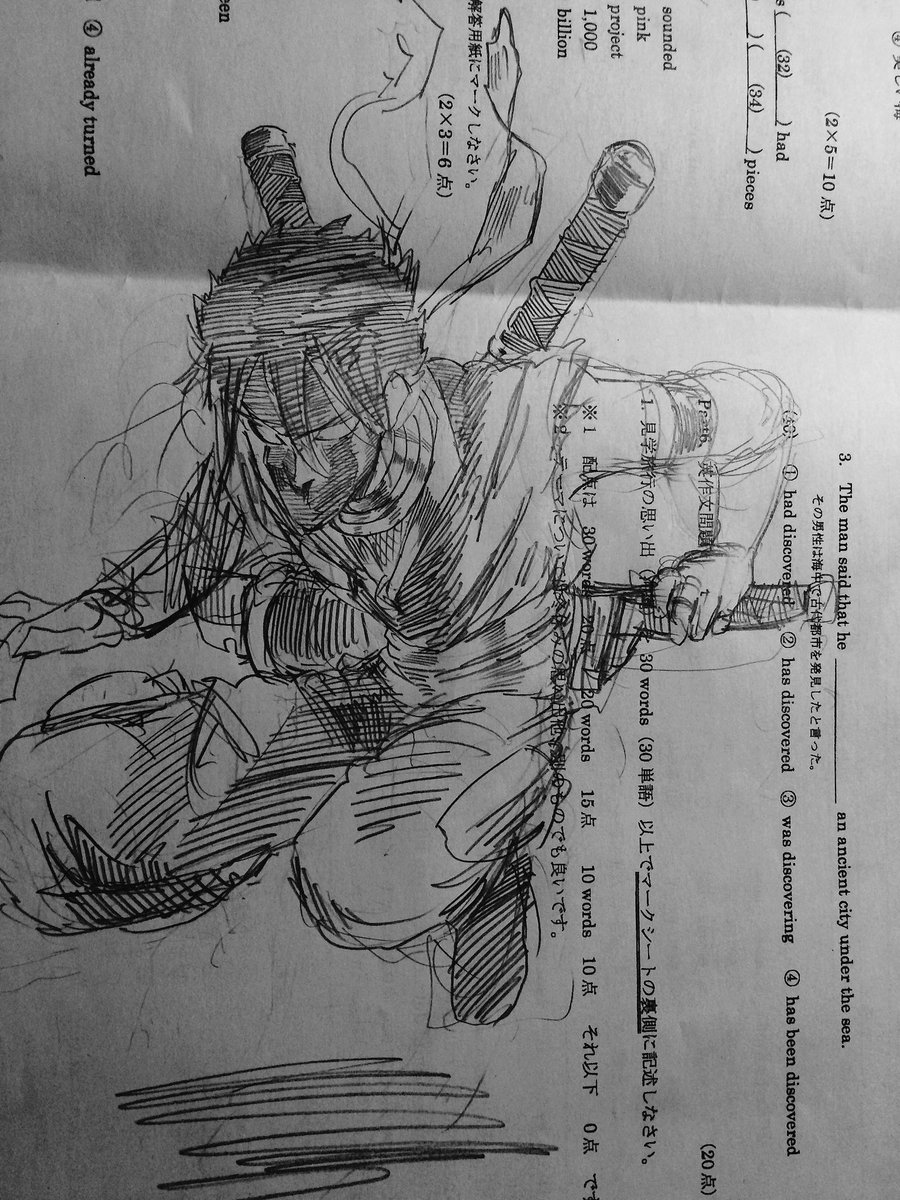 ④ 美しい海
(2×5=10 点)
s ( (32) ) had
) ( (34) ) pieces
sounded
pink
project
1,000
billion
解答用紙にマークしなさい。
(2×3=6 点)
een
④ already turned
3. The man said that he ____ an ancient city under the sea.
その男性は海中で古代都市を発見したと言った。
① had discovered ② has discovered ③ was discovering ④ has been discovered
Part6. 英作文問題 (20 点)
1. 見学旅行の思い出 30 words (30 単語) 以上でマークシートの裏側に記述しなさい。
※1 配点は 30 words 20 点 20 words 15 点 10 words 10 点 それ以下 0 点 です
のでも良いです。